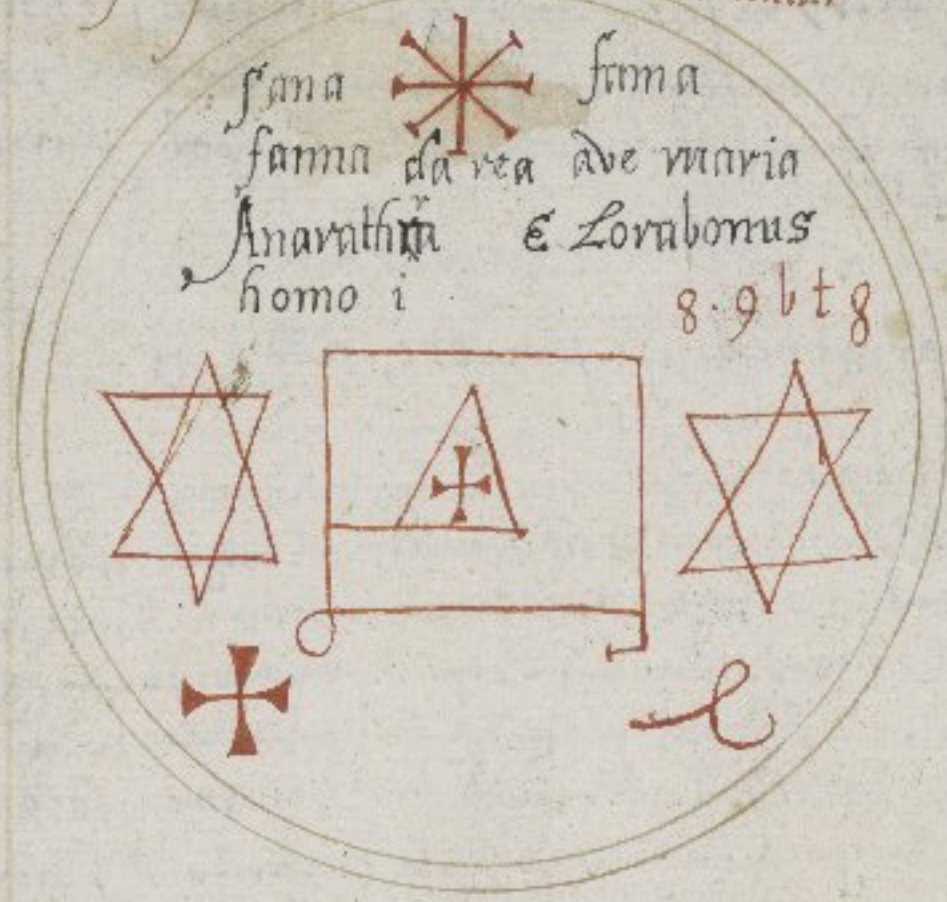 sana fama
fanna da rea ave maria
E Lorabonus
homo i
8 · 9 b t 8
A